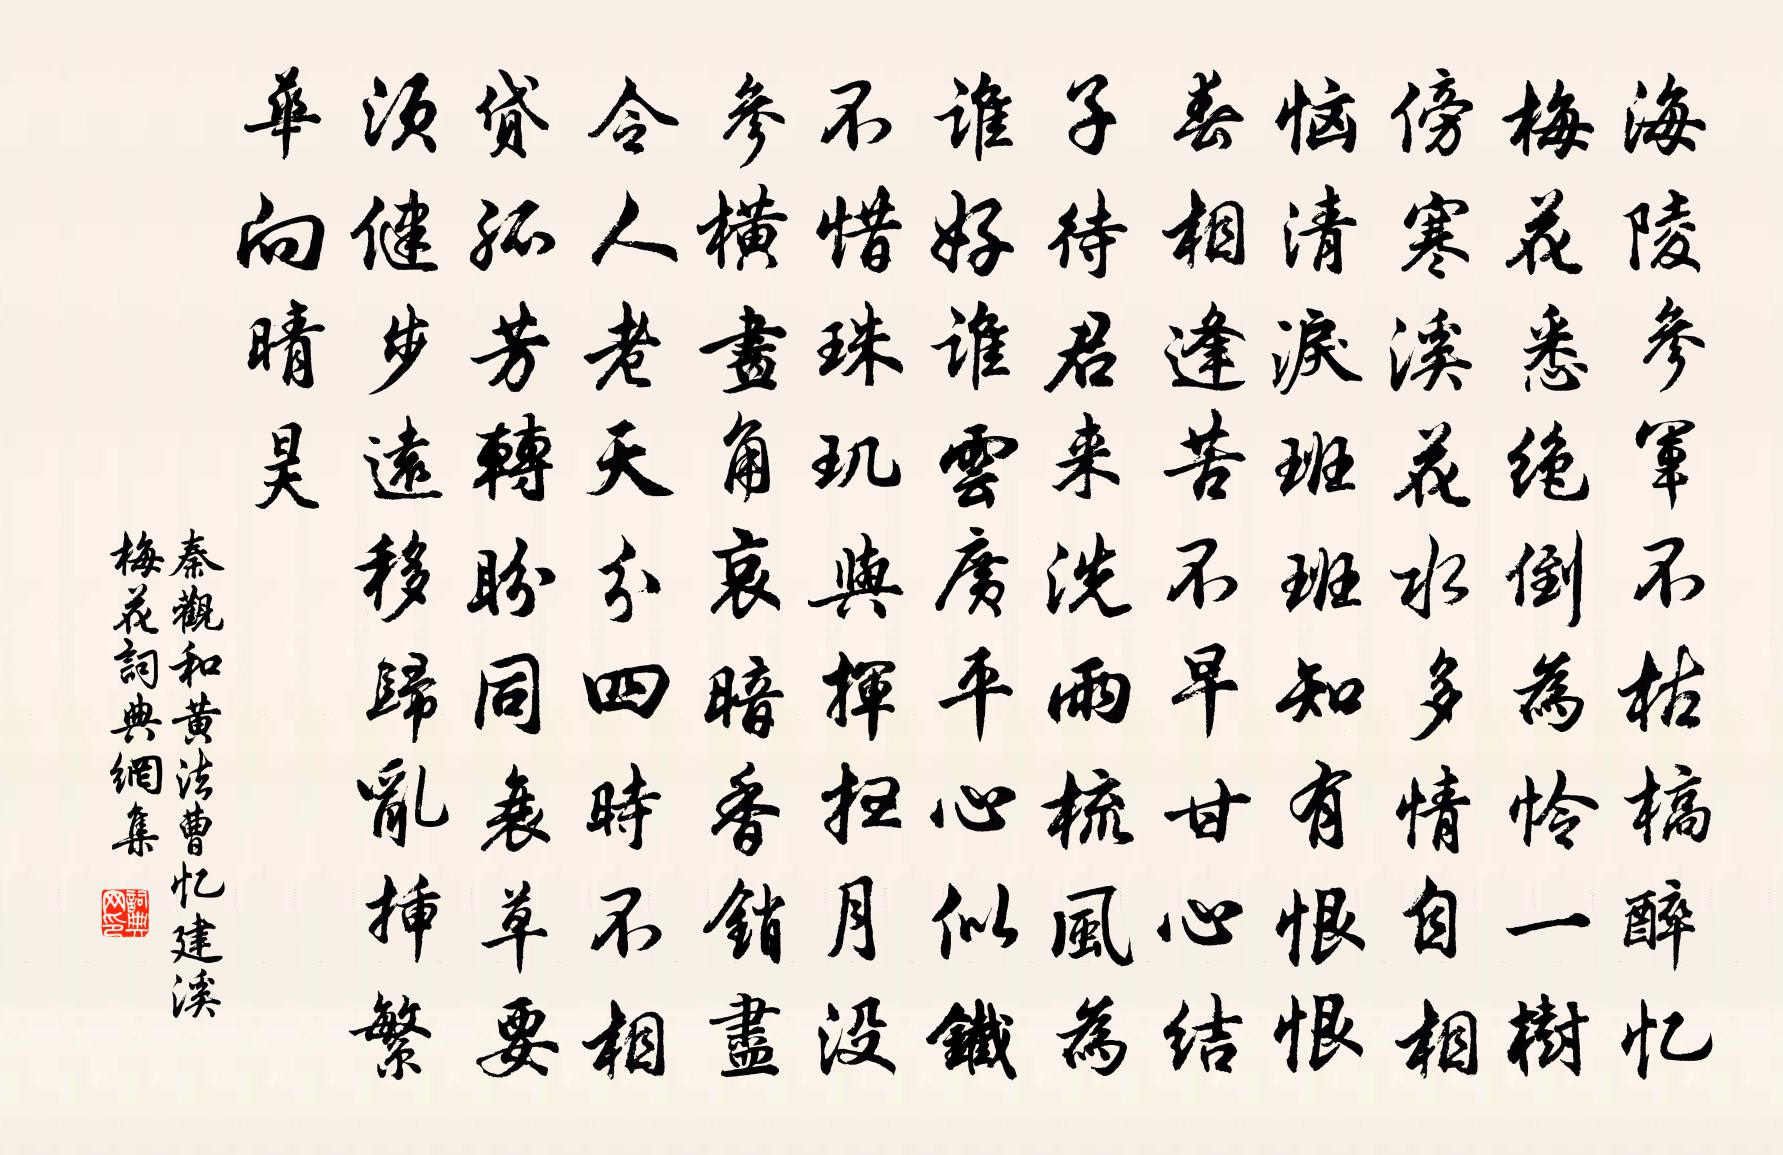 海陵參軍不枯槁醉忆
梅花悉绝倒為怜一樹
傍寒溪花水多情自相
恼清淚班班知有恨恨
春相逢苦不早甘心结
子待君来洗雨梳風為
誰好誰誰雲廣平心似鐵
不惜珠玑與揮扫月没
參横畫角哀暗香銷盡
令人老天分四時不相
貸孤芳轉盼同衰草要
須健步遠移歸亂插繁
華向晴昊
秦觀和黄法曹忆建溪
梅花詞典網集
詞典网印